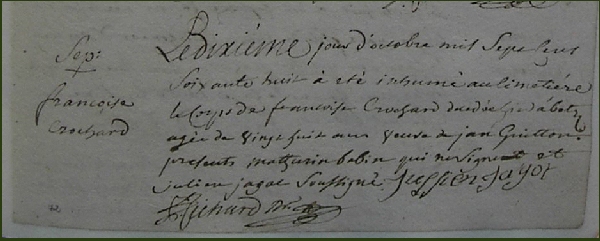 Sep:
françoise
Crochard
Le dixième jour d'octobre mil Sept Cens
Soixante huit à eté inhumé au Cimetière
le Corps de francoise Crochard decedée
agée de Vingt huit ans Veuve de jan
presents mathurin babin qui ne Signe et
julien jagot Soussigné Jullien Jagot
Richard